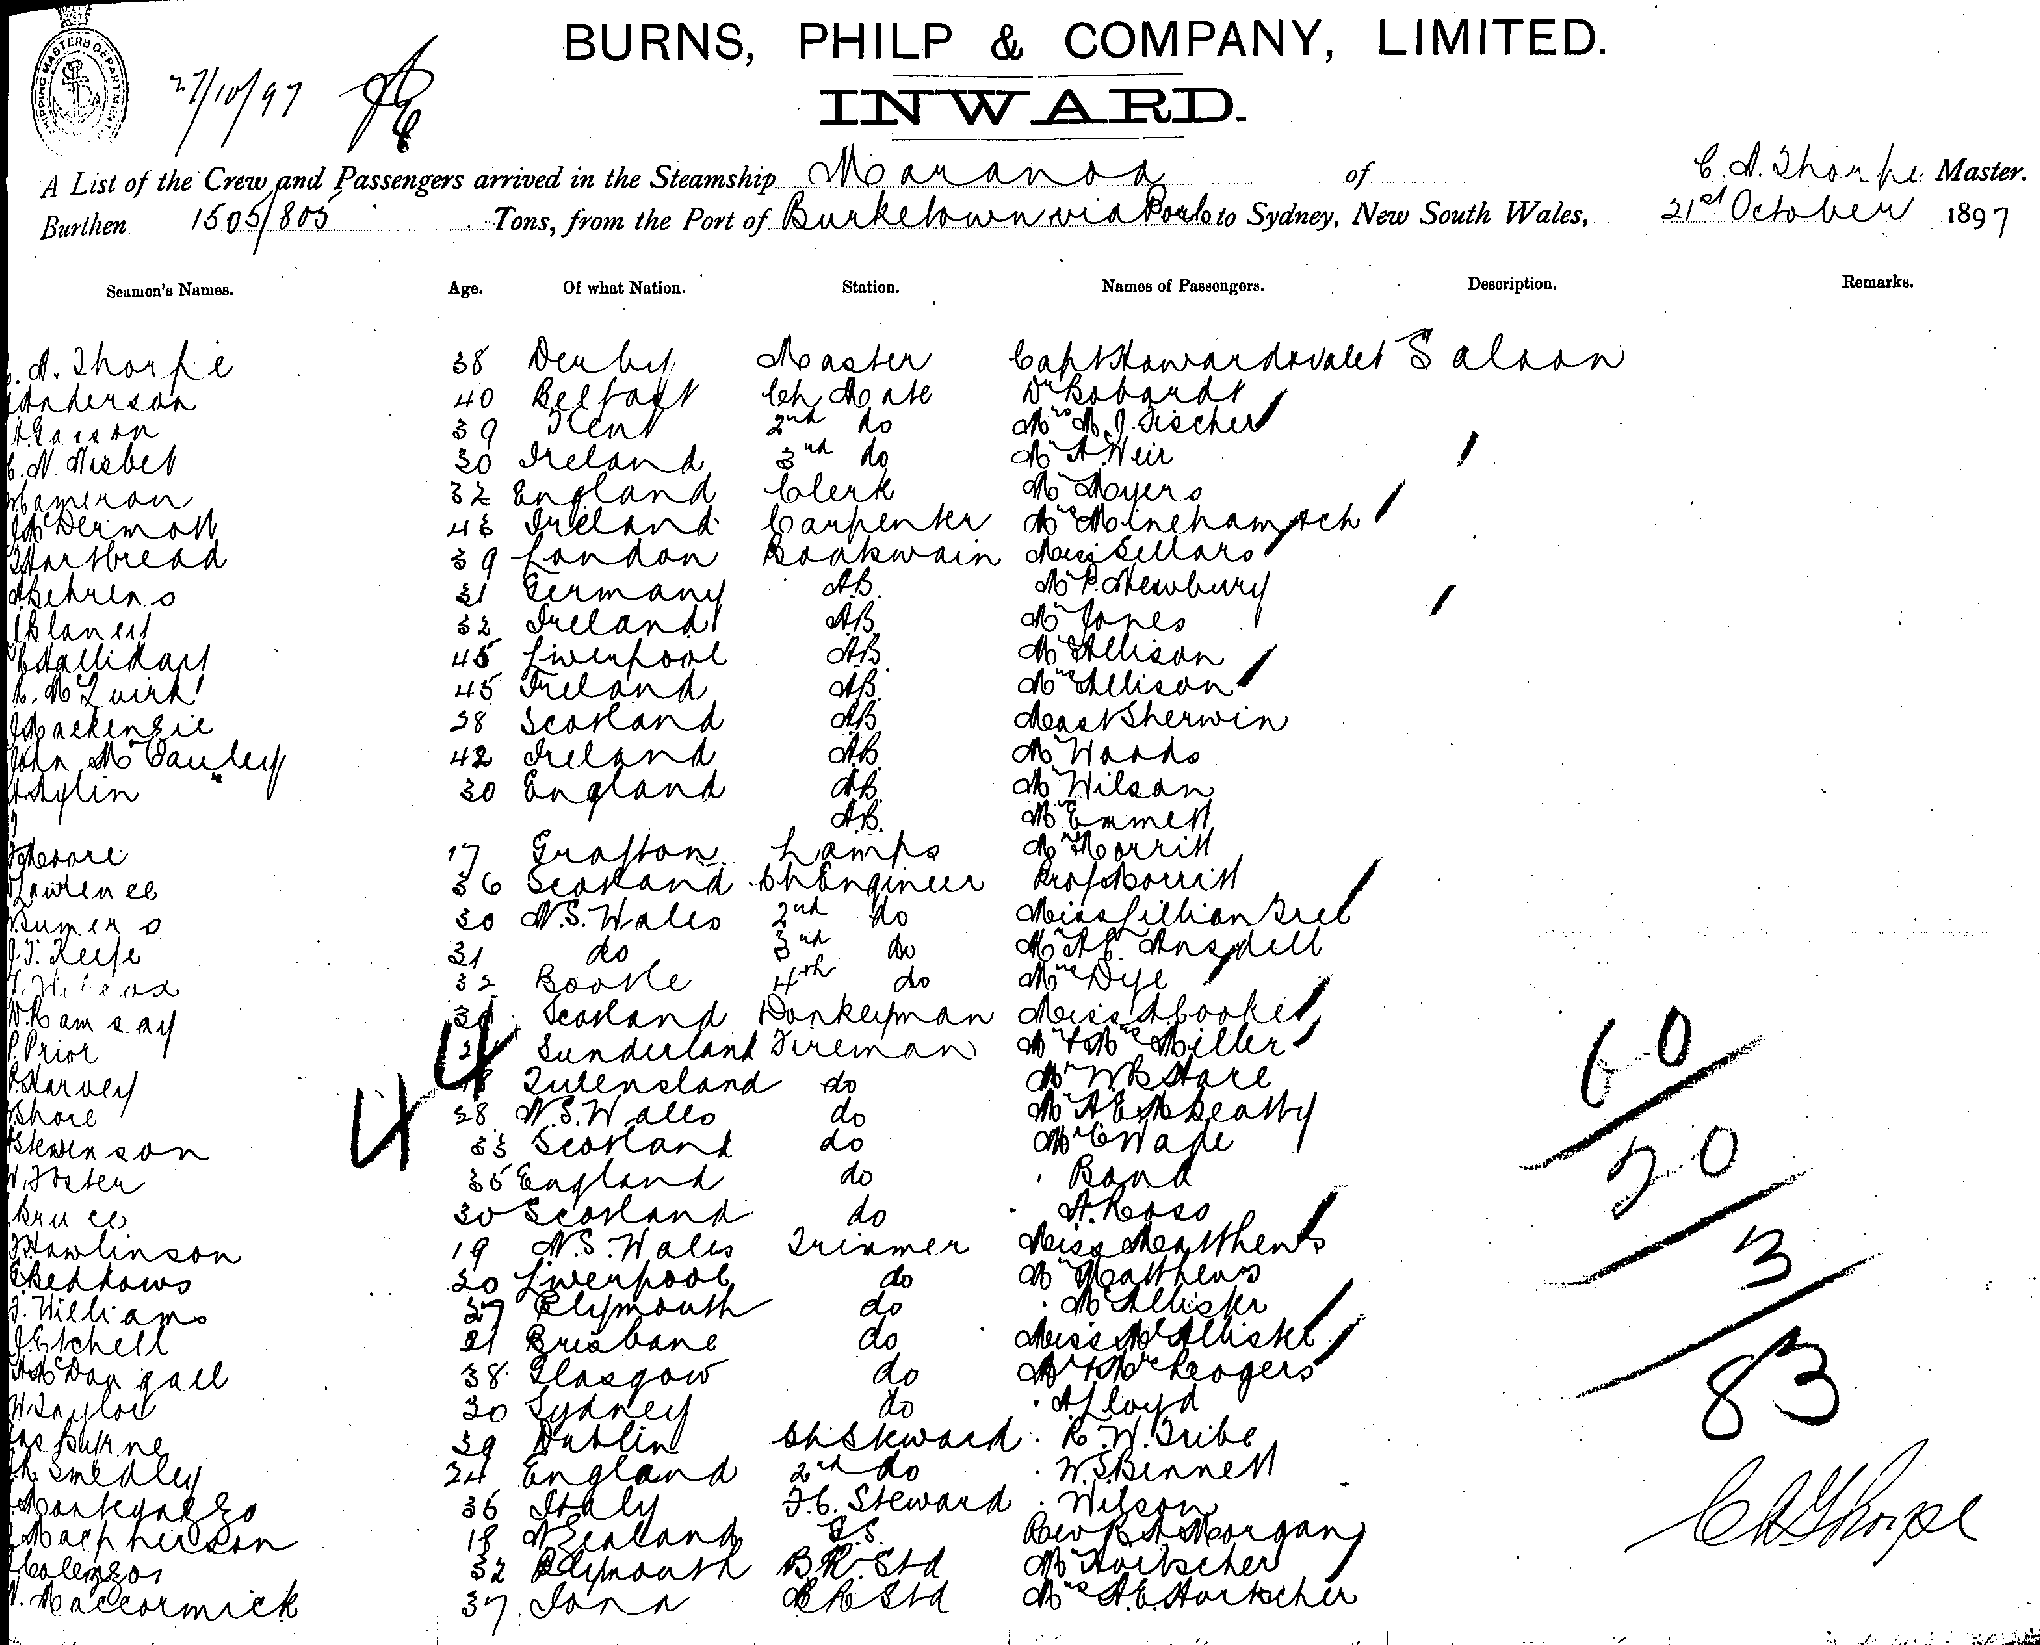 BURNS, PHILP & COMPANY, LIMITED.
27/10/97
INWARD.
A List of the Crew and Passengers arrived in the Steamship Maranoa of C. A. Thorpe Master.
Burthen 1505/805 Tons, from the Port of Burketown via Ports to Sydney, New South Wales, 21st October 1897
Seamen's Names. Age. Of what Nation. Station. Names of Passengers. Description. Remarks.
A. Thorpe 38 Derby Master Capt Howard & valet Saloon
Anderson 40 Belfast Ch Mate Dr Robardt
39 Kent 2nd do Mrs M. J. Fischer
N. Nisbet 30 Ireland 3rd do Mr A Weir
Cameron 32 England Clerk Mr Myers
McDermott 43 Ireland Carpenter
Hartbread 39 London Boatswain Miss Sellars
Behrens 31 Germany AB. Mr P. Newbury
Blaney 32 Ireland AB Mr Jones
Halliday 45 Liverpool AB Mr Allison
McQuirk 45 Ireland AB. Mrs Allison
Mackenzie 28 Scotland AB Mast Sherwin
John McCauley 42 Ireland AB. Mr Woods
Aylin 30 England AB. Mr Wilson
AB. Mr Emmett
Moore 17 Grafton Lamps Mrs Morritt
Lawrence 36 Scotland Ch Engineer Prof Morritt
Sumers 30 N.S. Wales 2nd do Miss Lillian
J. T. Keefe 31 do 3rd do Mr A E. Ansdell
32 Bootle 4th do Mrs Dye
Ramsay Scotland Donkeyman Miss A Cooke
Prior Sunderland Fireman Mr & Mrs Miller
44
Harvey Queensland do Mr W B Hare
Shore 28 N.S. Wales do Mr A E McBeatty
Stevenson 33 Scotland do Mr C Wade
W. Foster 35 England do Bond
Bruce 30 Scotland do A. Ross
Rawlinson 19 N.S. Wales Trimmer Miss Matthews
Beddows 20 Liverpool do Mr Matthews
J. Williams 27 Plymouth do McAllister
Etchell 21 Brisbane do Miss McAllister
McDougall 38 Glasgow do Mr & Mrs Rogers
W Taylor 30 Sydney do A Lloyd
Jas Byrne 39 Dublin Ch Steward R. W. Tribe
Smedley 24 England 2nd do W. S. Bennett
36 Italy F.C. Steward Wilson
Macpherson 18 N Zealand S.S. Rev R A Morgan
32 Plymouth B.R. Std Mr Hortscher
Maccormick 37 Iona RR Std Mrs A. E. Hortscher
60
20
3
83
C A Thorpe